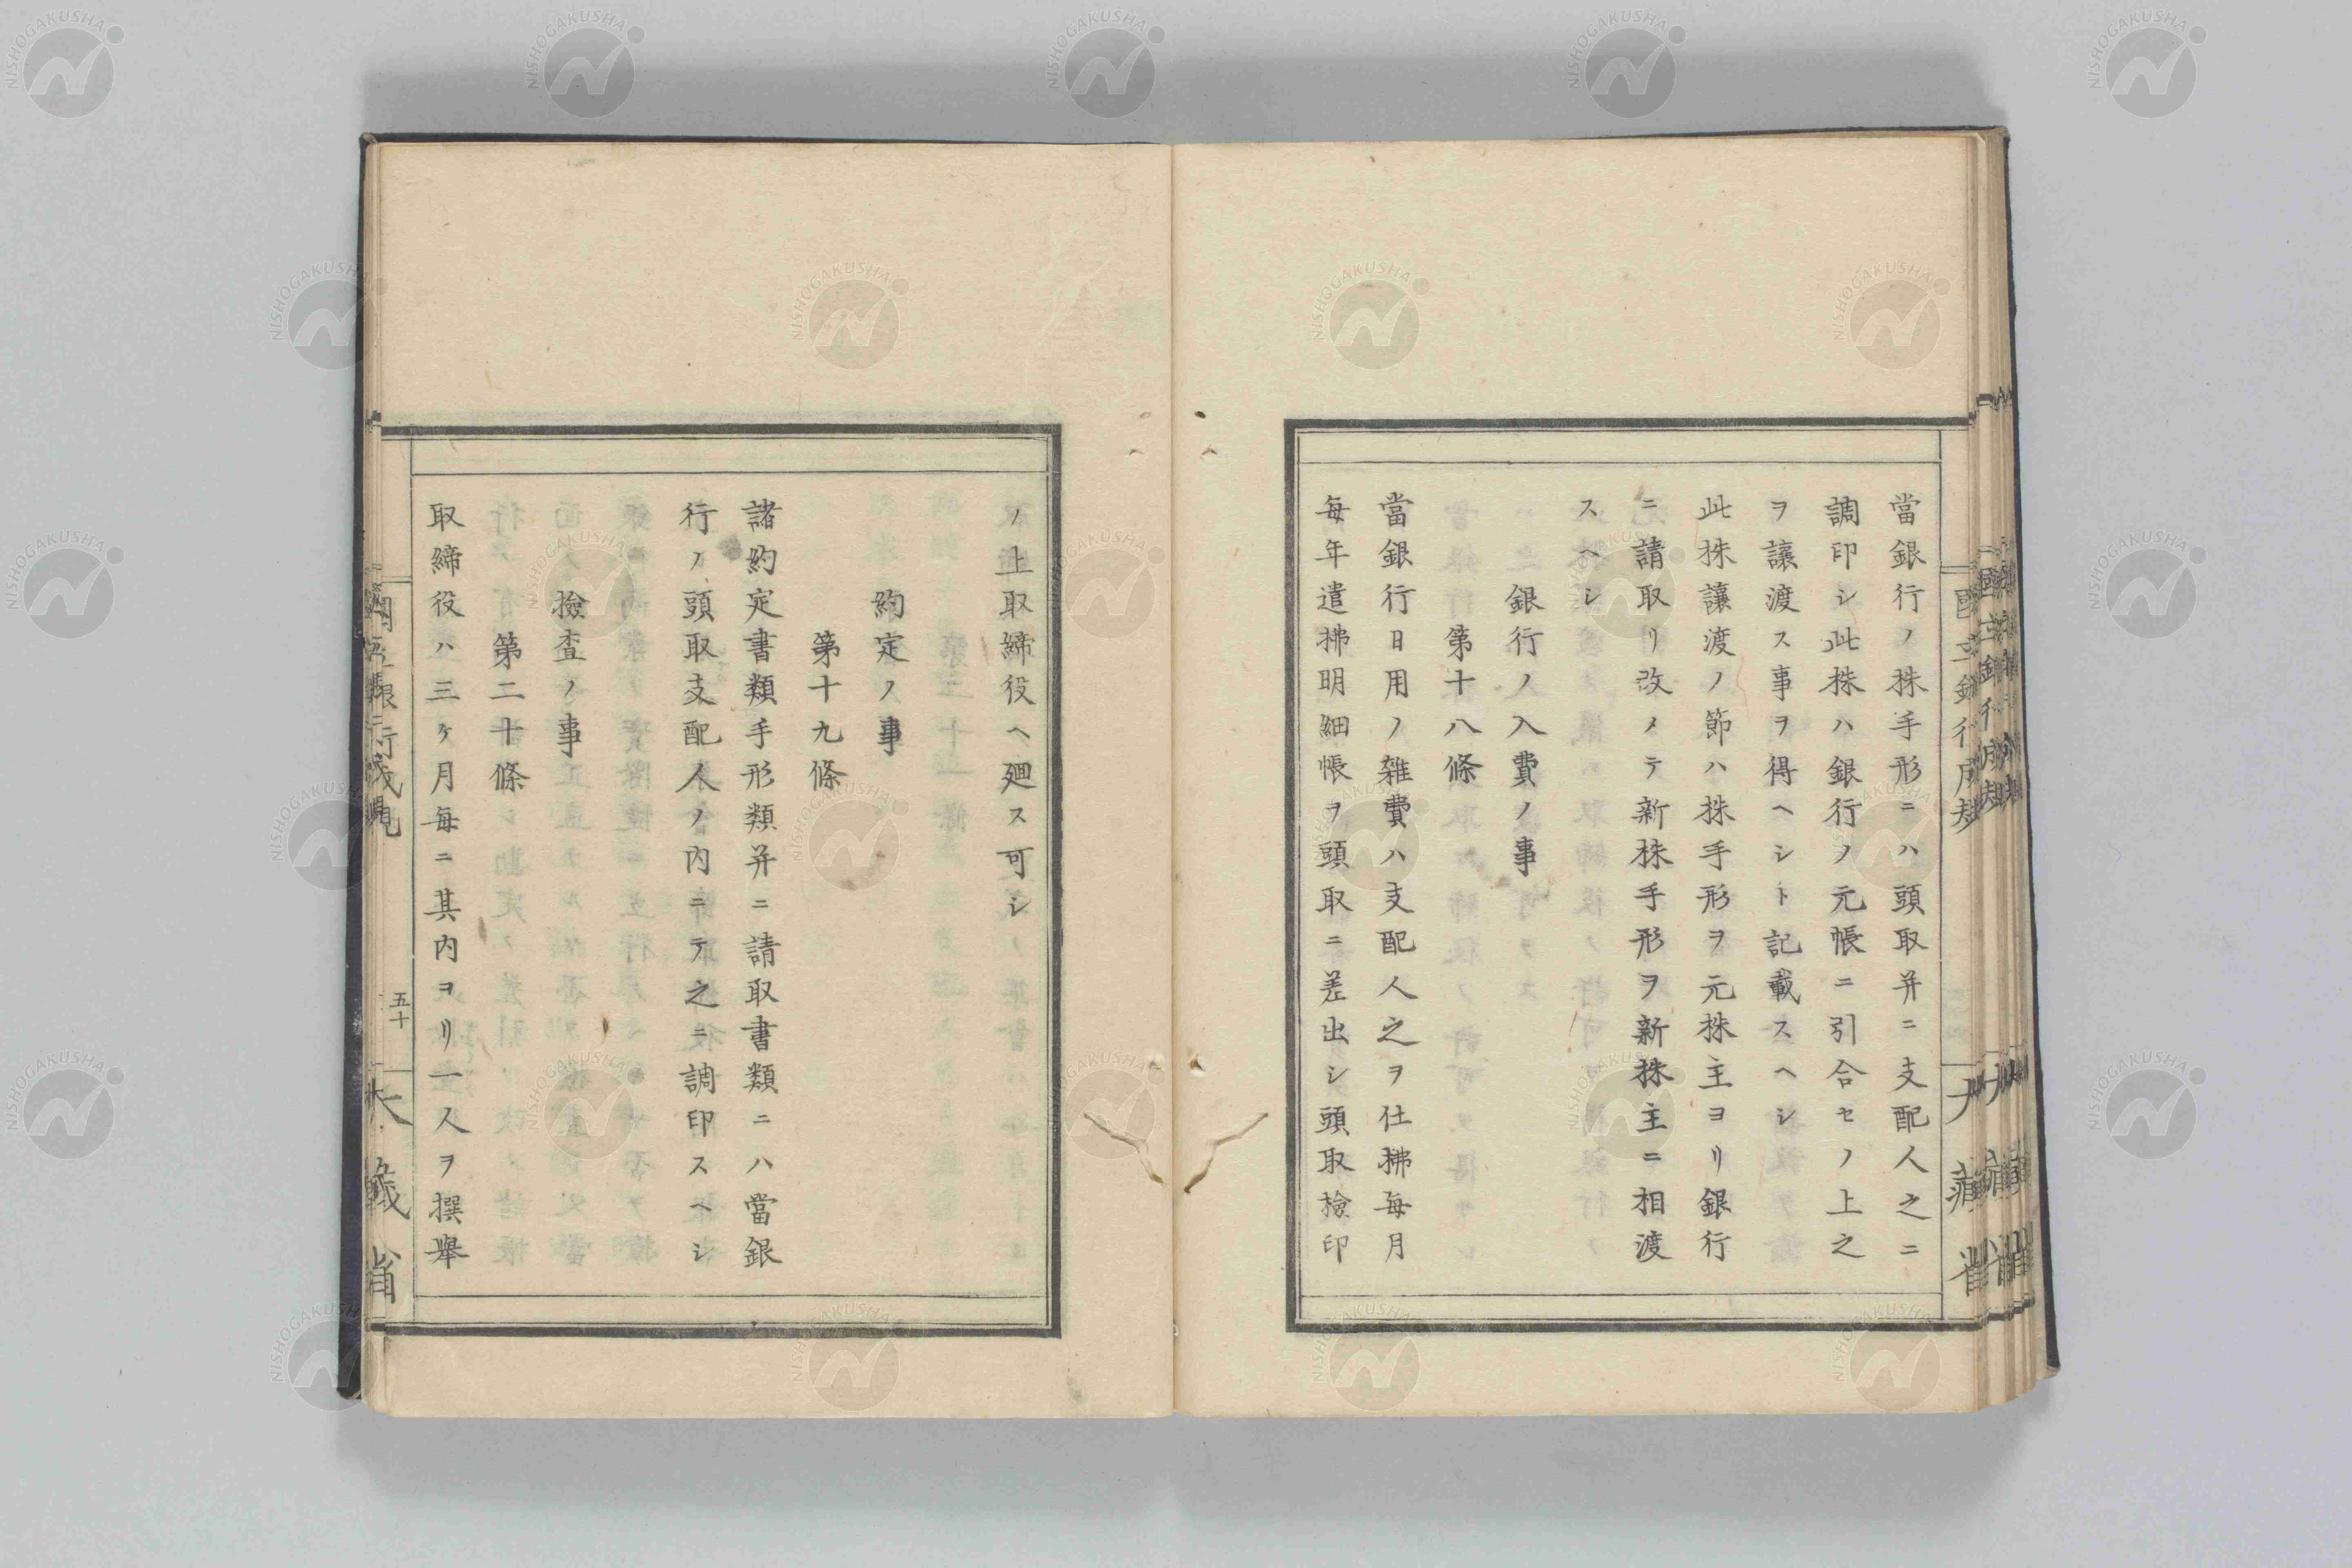 當銀行ノ株手形ニハ頭取并ニ支配人之ニ
調印シ此株ハ銀行ノ元帳ニ引合セノ上之
ヲ讓渡ス事ヲ得ヘシト記載スヘシ
此株讓渡ノ節ハ株手形ヲ元株主ヨリ銀行
ニ請取リ改メテ新株手形ヲ新株主ニ相渡
スヘシ
銀行ノ入費ノ事
第十八條
當銀行日用ノ雑費ハ支配人之ヲ仕拂毎月
毎年遣拂明細帳ヲ頭取ニ差出シ頭取檢印
ノ上取締役ヘ廻ス可シ
約定ノ事
第十九條
諸約定書類手形類并ニ請取書類ニハ當銀
行ノ頭取支配人ノ内ニテ之ニ調印スヘシ
檢査ノ事
第二十條
取締役ハ三ケ月毎ニ其内ヨリ一人ヲ撰舉
五十
大藏省
NISHOGAKUSHA